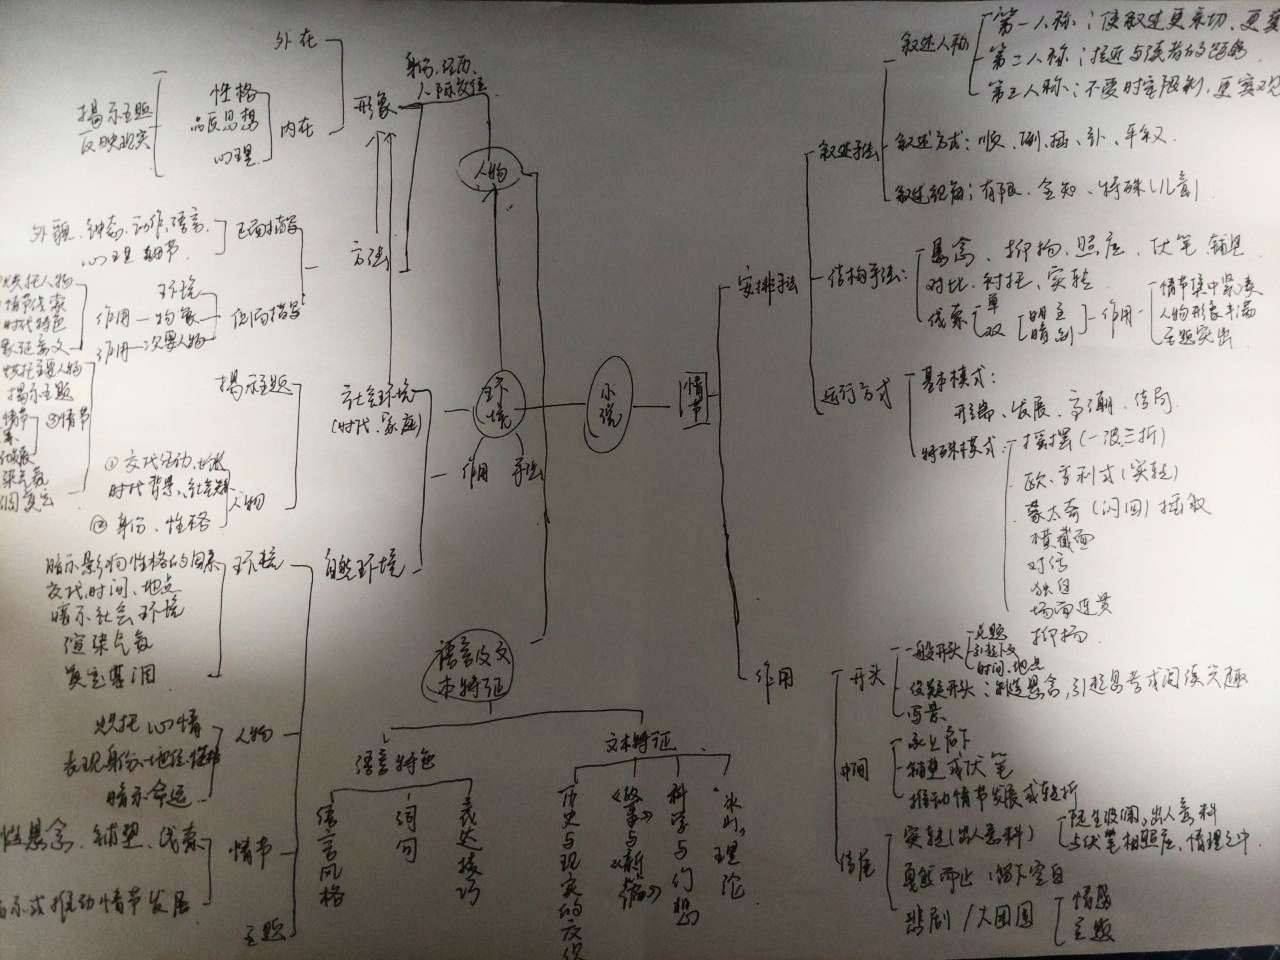 小说
人物
身份、经历、
人际交往
形象
外在
内在
性格
品质思想
心理
揭示主题
反映现实
方法
正面描写
外貌、神态、动作、语言、
心理 细节
侧面描写
环境
物象
作用
次要人物
作用
烘托人物
情节线索
时代特色
象征意义
烘托主要人物
揭示主题
情节
环境
作用
手法
社会环境
(时代、家庭)
揭示主题
人物
①交代活动
时代背景、社会
②身份、性格
自然环境
环境
暗示影响性格的因素
交代时间、地点
暗示社会环境
渲染气氛
奠定基调
人物
烘托心情
表现身份、地位、性格
暗示命运
情节
悬念、铺垫、线索
示或推动情节发展
主题
语言及文
本特征
语言特色
语言风格
词句
表达技巧
文本特征
历史与现实的
《故事》与《新编》
科学与幻想
冰山理论
情节
安排手法
叙述手法
叙述人称
第一人称:使叙述更亲切、更
第二人称:拉近与读者的距离
第三人称:不受时空限制,更客观
叙述方式:顺、倒、插、补、平叙
叙述视角:有限、全知、特殊(儿童)
结构手法:
悬念、抑扬、照应、伏笔、铺垫
对比、衬托、突转
线索
单
双
明主
暗副
作用
情节集中紧凑
人物形象丰满
主题突出
运行方式
基本模式:
开端、发展、高潮、结局
特殊模式:
摇摆(一波三折)
欧·亨利式(突转)
蒙太奇(闪回)插叙
横截面
对话
独白
场面连贯
抑扬
作用
开头
一般开头
点题
引起下文
时间、地点
设疑开头:制造悬念,引起思考或阅读兴趣
写景
中间
承上启下
铺垫或伏笔
推动情节发展或转折
结尾
突转(出人意料)
陡生波澜,出人意料
与伏笔相照应,情理之中
戛然而止:留下空白
悲剧/大团圆
情感
主题